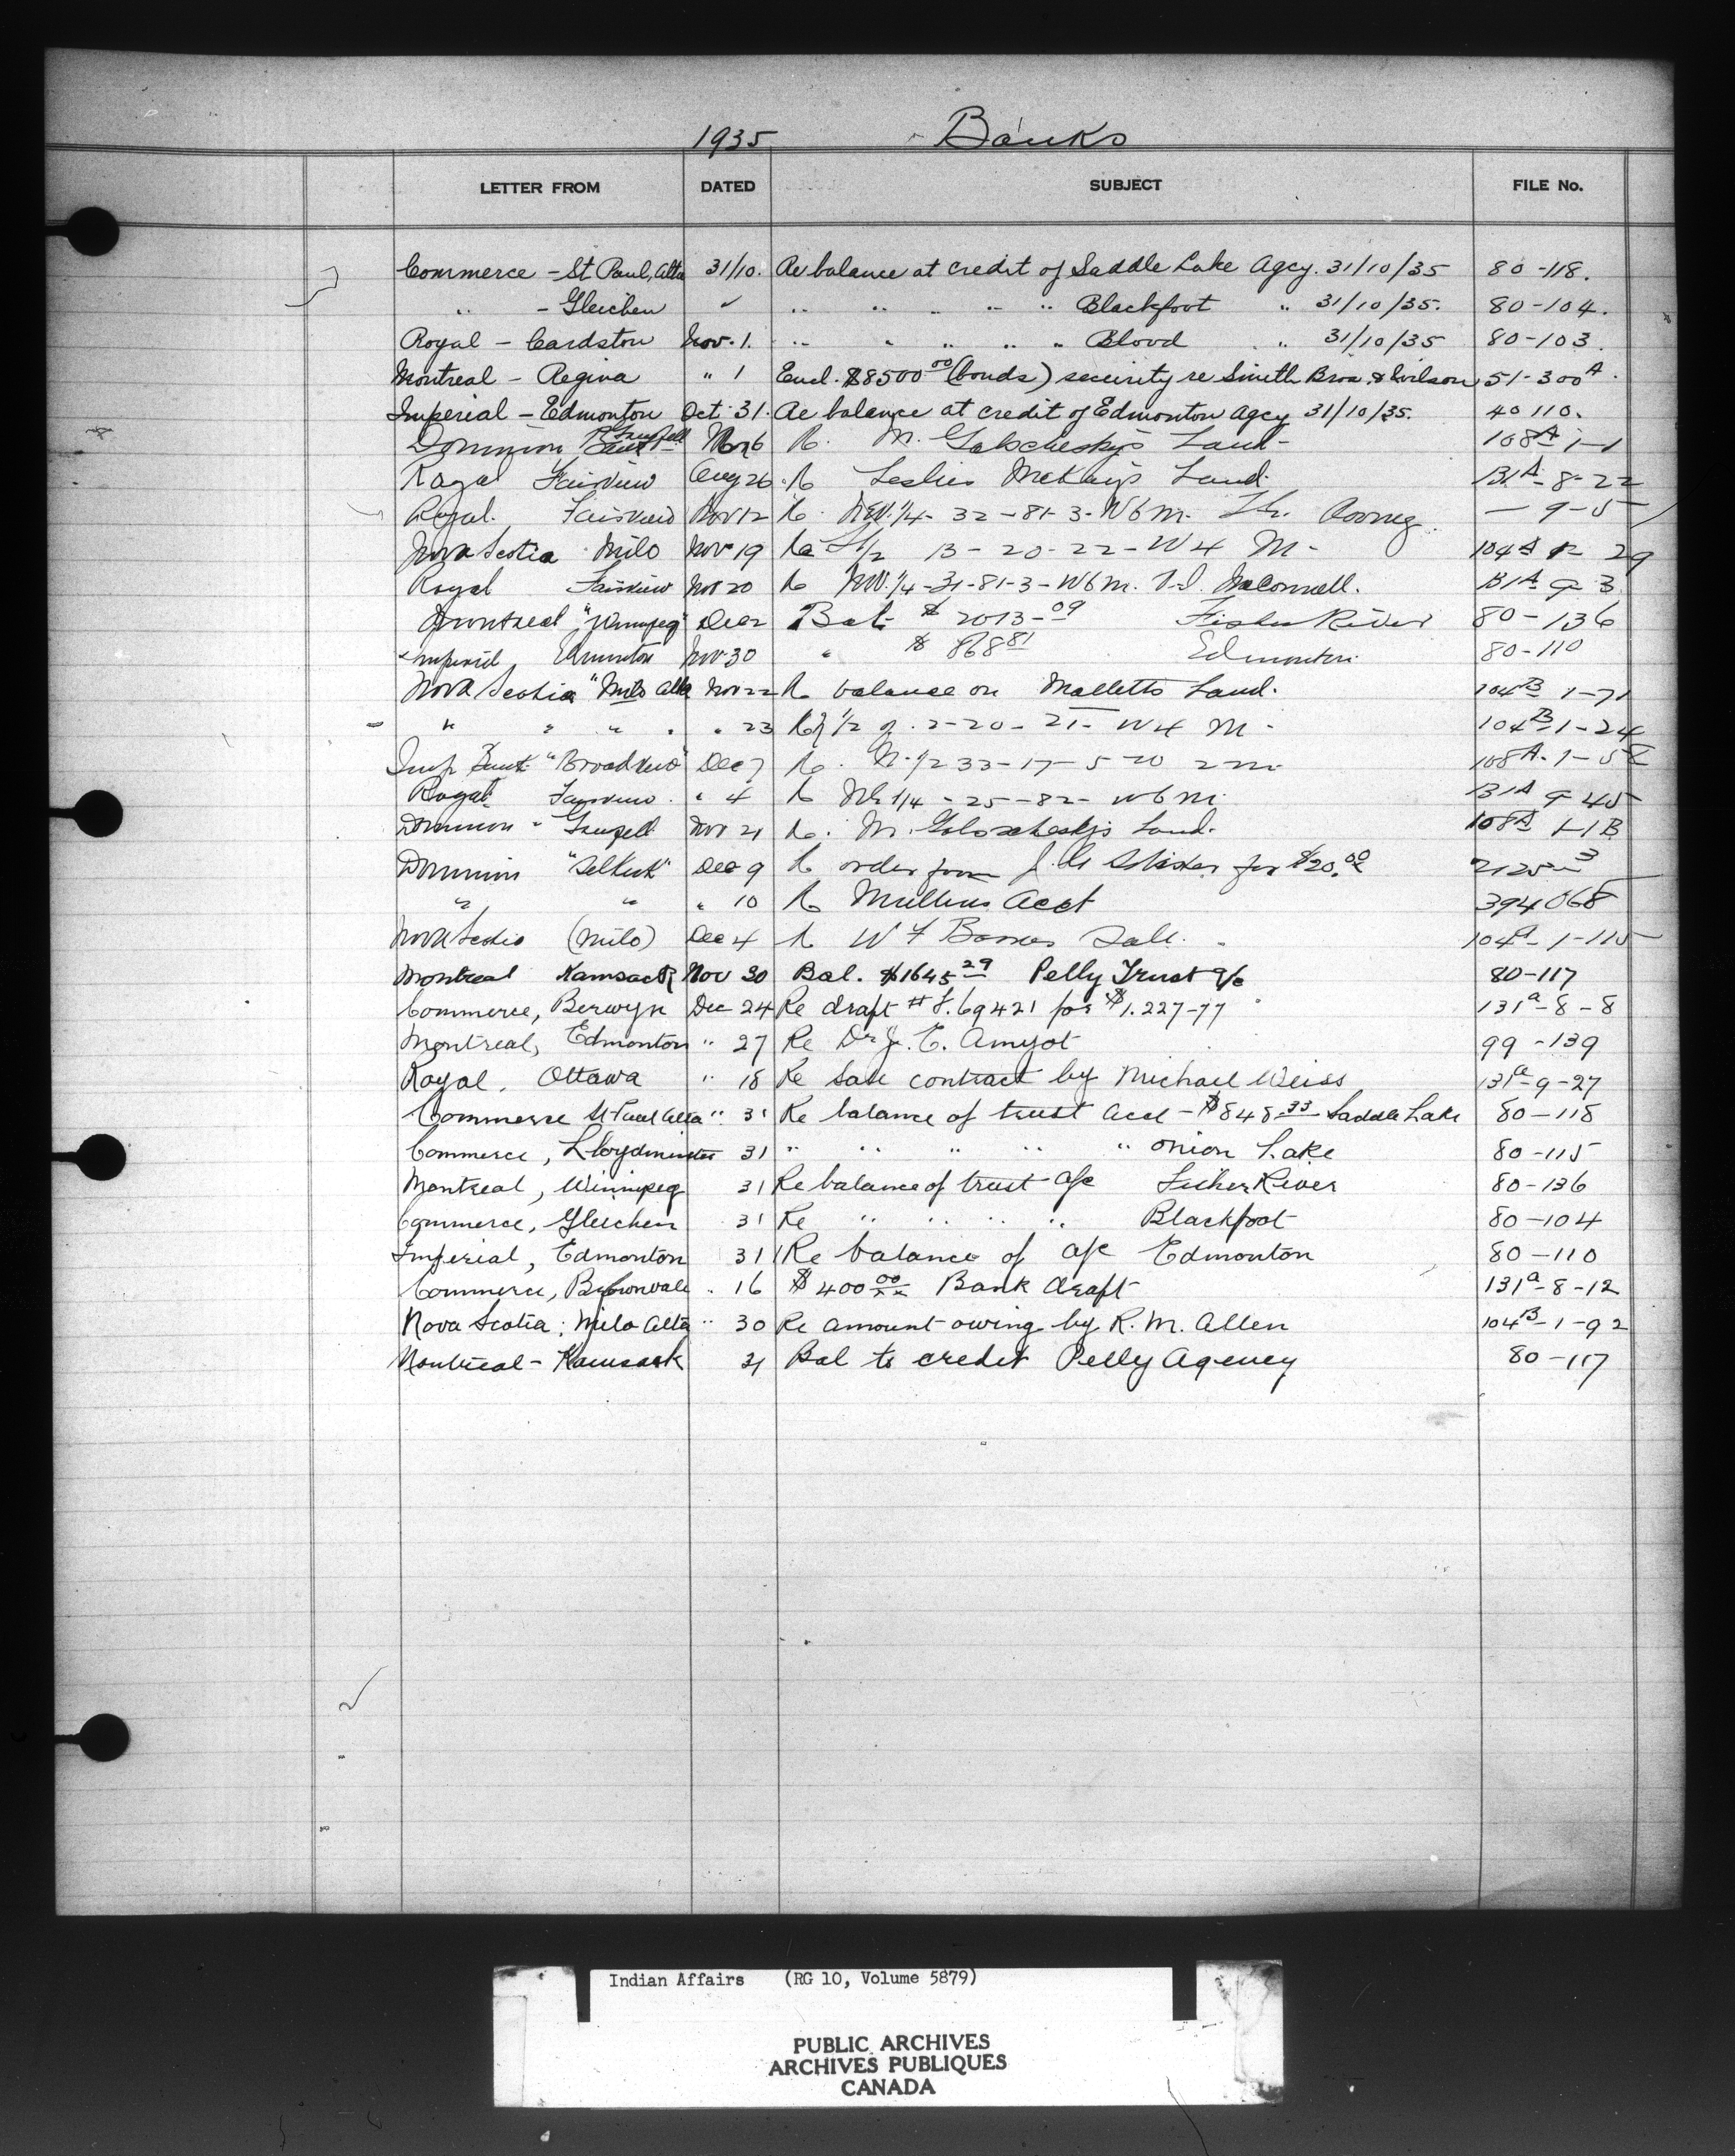 1935 Banks
LETTER FROM DATED SUBJECT FILE No.
Commerce - St Paul, Alta 31/10. Re balance at credit of Saddle Lake Agcy. 31/10/35 80-118.
" - Gleichen " " " " " " Blackfoot " 31/10/35. 80-104.
Royal - Cardston Nov. 1. " " " " " Blood " 31/10/35 80-103.
Montreal - Regina " 1 Encl. $8500 00 (bonds) security re Smith Bros. & Wilson 51-300 A.
Imperial - Edmonton Oct 31. Re balance at credit of Edmonton Agcy 31/10/35. 40 110.
Dominion Grenfell Nov 6 Re. M. Land - 108A 1-1
Royal Fairview Aug 26 Re Leslie Land. 131A-8-22
Royal. Fairview Nov 12 Re. NW. 1/4 - 32-81-3-W6 M. - 9-5
Nova Scotia Milo Nov 19 Re 1/2 13-20-22-W4 M- 104A 29
Royal Fairview Nov 20 Re NW. 1/4-31-81-3-W6 M. McConnell. 131A 9 3
Montreal "Winnipeg" Dec 2 Bal- $2013-09 Fisher River 80-136
Imperial Edmonton Nov 30 " $868 81 Edmonton 80-110
Nova Scotia "Milo Alta Nov 22 Re balance on Malletts Land. 104B 1-71
" " " " " 23 Re 1/2 of 2-20-21-W4 M- 104B 1-24
Imp Bank "Broadview" Dec 7 Re. N. 1/2 33-17-5 W 2 M 108A-1-58
Royal Fairview " 4 Re 1/4-25-82-W6 M. 131A 9-45
Dominion " Grenfell Nov 21 Re. M. Land. 108A 1-1B
Dominion "Selkirk" Dec 9 Re order from J. for $20.00 2125-3
" " " 10 Re Mullins Acct 394068
Nova Scotia (Milo) Dec 4 Re W F Sale. 104A-1-115
Montreal Kamsack Nov 30 Bal. $1645 29 Pelly Trust a/c 80-117
Commerce, Berwyn Dec 24 Re draft # 69421 for $1.227-77 131a-8-8
Montreal, Edmonton " 27 Re Dr J. E. Amyot 99-139
Royal, Ottawa " 18 Re sale contract by Michael Weiss 131a-9-27
Commerce St Paul Alta " 31 Re balance of trust acct - $848 33 Saddle Lake 80-118
Commerce, Lloydminster 31 " " " " " Onion Lake 80-115
Montreal, Winnipeg 31 Re balance of trust a/c Fisher River 80-136
Commerce, Gleichen 31 Re " " " " Blackfoot 80-104
Imperial, Edmonton 31 Re balance of a/c Edmonton 80-110
Commerce, Brownvale " 16 $400 00 Bank draft 131a-8-12
Nova Scotia; Milo Alta " 30 Re amount owing by R. M. Allen 104B-1-92
Montreal - Kamsack 31 Bal to credit Pelly Agency 80-117
Indian Affairs (RG 10, Volume 5879)
PUBLIC ARCHIVES
ARCHIVES PUBLIQUES
CANADA